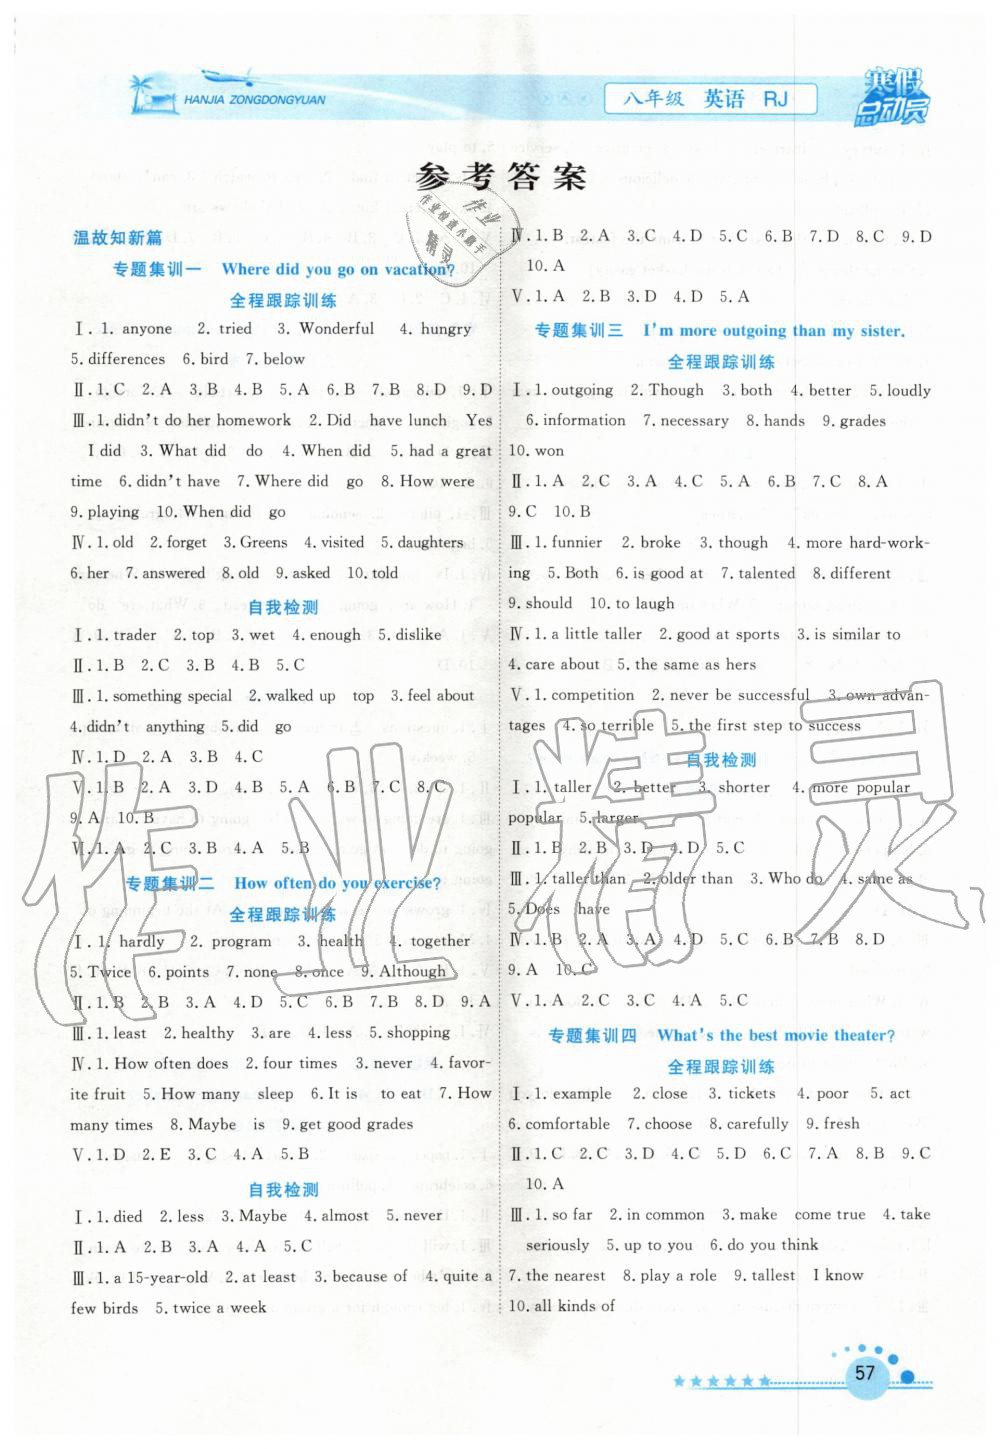 HANJIA ZONGDONGYUAN
八年级 英语 RJ
寒假
总动员
参考答案
温故知新篇
专题集训一 Where did you go on vacation?
全程跟踪训练
Ⅰ.1. anyone 2. tried 3. Wonderful 4. hungry
5. differences 6. bird 7. below
Ⅱ.1. C 2. A 3. B 4. B 5. A 6. B 7. B 8. D 9. D
Ⅲ.1. didn't do her homework 2. Did have lunch Yes
I did 3. What did do 4. When did 5. had a great
time 6. didn't have 7. Where did go 8. How were
9. playing 10. When did go
Ⅳ.1. old 2. forget 3. Greens 4. visited 5. daughters
6. her 7. answered 8. old 9. asked 10. told
自我检测
Ⅰ.1. trader 2. top 3. wet 4. enough 5. dislike
Ⅱ.1. B 2. C 3. B 4. B 5. C
Ⅲ.1. something special 2. walked up top 3. feel about
4. didn't anything 5. did go
Ⅳ.1. D 2. A 3. B 4. C
Ⅴ.1. B 2. A 3. D 4. B 5. A 6. B 7. C 8. C
9. A 10. B
Ⅵ.1. A 2. C 3. B 4. A 5. B
专题集训二 How often do you exercise?
全程跟踪训练
Ⅰ.1. hardly 2. program 3. health 4. together
5. Twice 6. points 7. none 8. once 9. Although
Ⅱ.1. B 2. B 3. A 4. D 5. C 6. B 7. C 8. D 9. A
Ⅲ.1. least 2. healthy 3. are 4. less 5. shopping
Ⅳ.1. How often does 2. four times 3. never 4. favor-
ite fruit 5. How many sleep 6. It is to eat 7. How
many times 8. Maybe is 9. get good grades
Ⅴ.1. D 2. E 3. C 4. A 5. B
自我检测
Ⅰ.1. died 2. less 3. Maybe 4. almost 5. never
Ⅱ.1. A 2. B 3. A 4. A 5. C
Ⅲ.1. a 15-year-old 2. at least 3. because of 4. quite a
few birds 5. twice a week
Ⅳ.1. B 2. A 3. C 4. D 5. C 6. B 7. D 8. C 9. D
10. A
Ⅴ.1. A 2. B 3. C 4. D 5. A
专题集训三 I'm more outgoing than my sister.
全程跟踪训练
Ⅰ.1. outgoing 2. Though 3. both 4. better 5. loudly
6. information 7. necessary 8. hands 9. grades
10. won
Ⅱ.1. A 2. C 3. A 4. C 5. A 6. B 7. C 8. A
9. C 10. B
Ⅲ.1. funnier 2. broke 3. though 4. more hard-work-
ing 5. Both 6. is good at 7. talented 8. different
9. should 10. to laugh
Ⅳ.1. a little taller 2. good at sports 3. is similar to
4. care about 5. the same as hers
Ⅴ.1. competition 2. never be successful 3. own advan-
tages 4. so terrible 5. the first step to success
自我检测
Ⅰ.1. taller 2. better 3. shorter 4. more popular
popular 5. larger
Ⅱ.1. B 2. B 3. D 4. D 5. C
Ⅲ.1. taller than 2. older than 3. Who do 4. same as
5. Does have
Ⅳ.1. B 2. A 3. A 4. D 5. C 6. B 7. B 8. D
9. A 10. C
Ⅴ.1. A 2. C 3. A 4. B 5. C
专题集训四 What's the best movie theater?
全程跟踪训练
Ⅰ.1. example 2. close 3. tickets 4. poor 5. act
6. comfortable 7. choose 8. carefully 9. fresh
Ⅱ.1. C 2. C 3. D 4. C 5. D 6. C 7. A 8. B 9. C
10. A
Ⅲ.1. so far 2. in common 3. make come true 4. take
seriously 5. up to you 6. do you think
7. the nearest 8. play a role 9. tallest I know
10. all kinds of
57
作业精灵